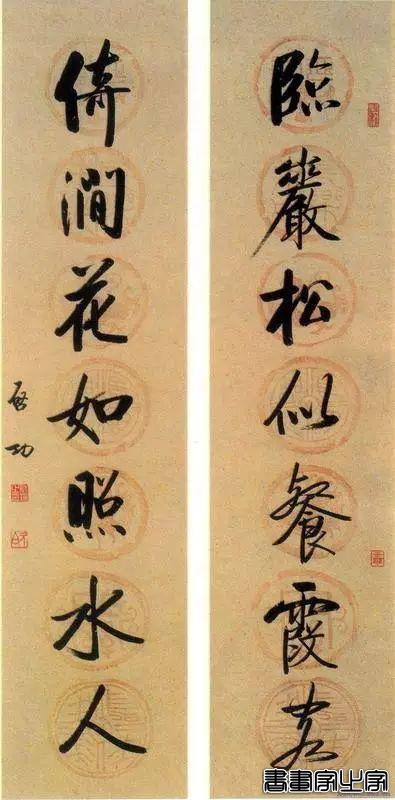 臨巖松似餐霞客
倚澗花如照水人
啓功
書畫家之家